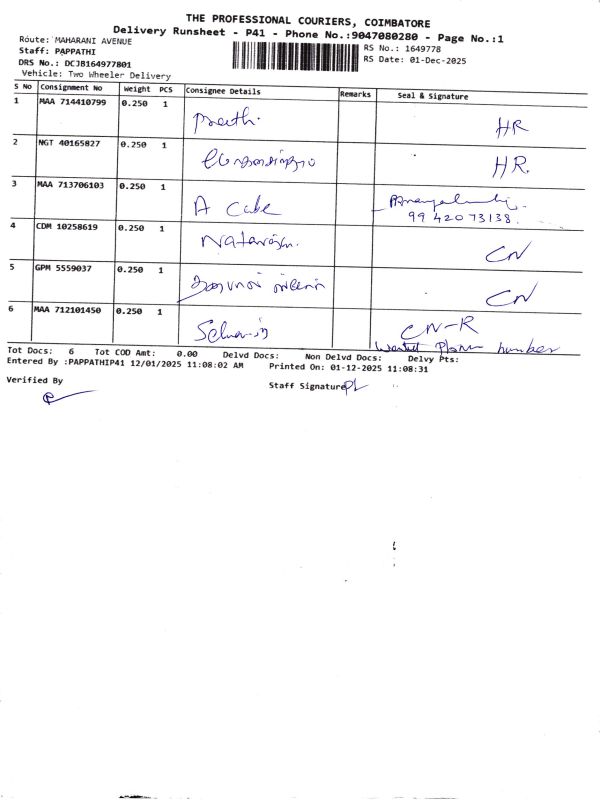 THE PROFESSIONAL COURIERS, COIMBATORE
Delivery Runsheet - P41 - Phone No.:9047080280 - Page No.:1
Route: MAHARANI AVENUE
RS No.: 1649778
Staff: PAPPATHI
RS Date: 01-Dec-2025
DRS No.: DCJB164977801
Vehicle: Two Wheeler Delivery
S No Consignment No Weight PCS Consignee Details Remarks Seal & Signature
1 MAA 714410799 0.250 1 HR
2 NGT 40165827 0.250 1 HR.
3 MAA 713706103 0.250 1 A Cube
99 420 73138.
4 CDM 10258619 0.250 1 Natarajan. CN
5 GPM 5559037 0.250 1 CN
6 MAA 712101450 0.250 1 CN-R
number
Tot Docs: 6 Tot COD Amt: 0.00 Delvd Docs: Non Delvd Docs: Delvy Pts:
Entered By :PAPPATHIP41 12/01/2025 11:08:02 AM Printed On: 01-12-2025 11:08:31
Verified By
Staff Signature